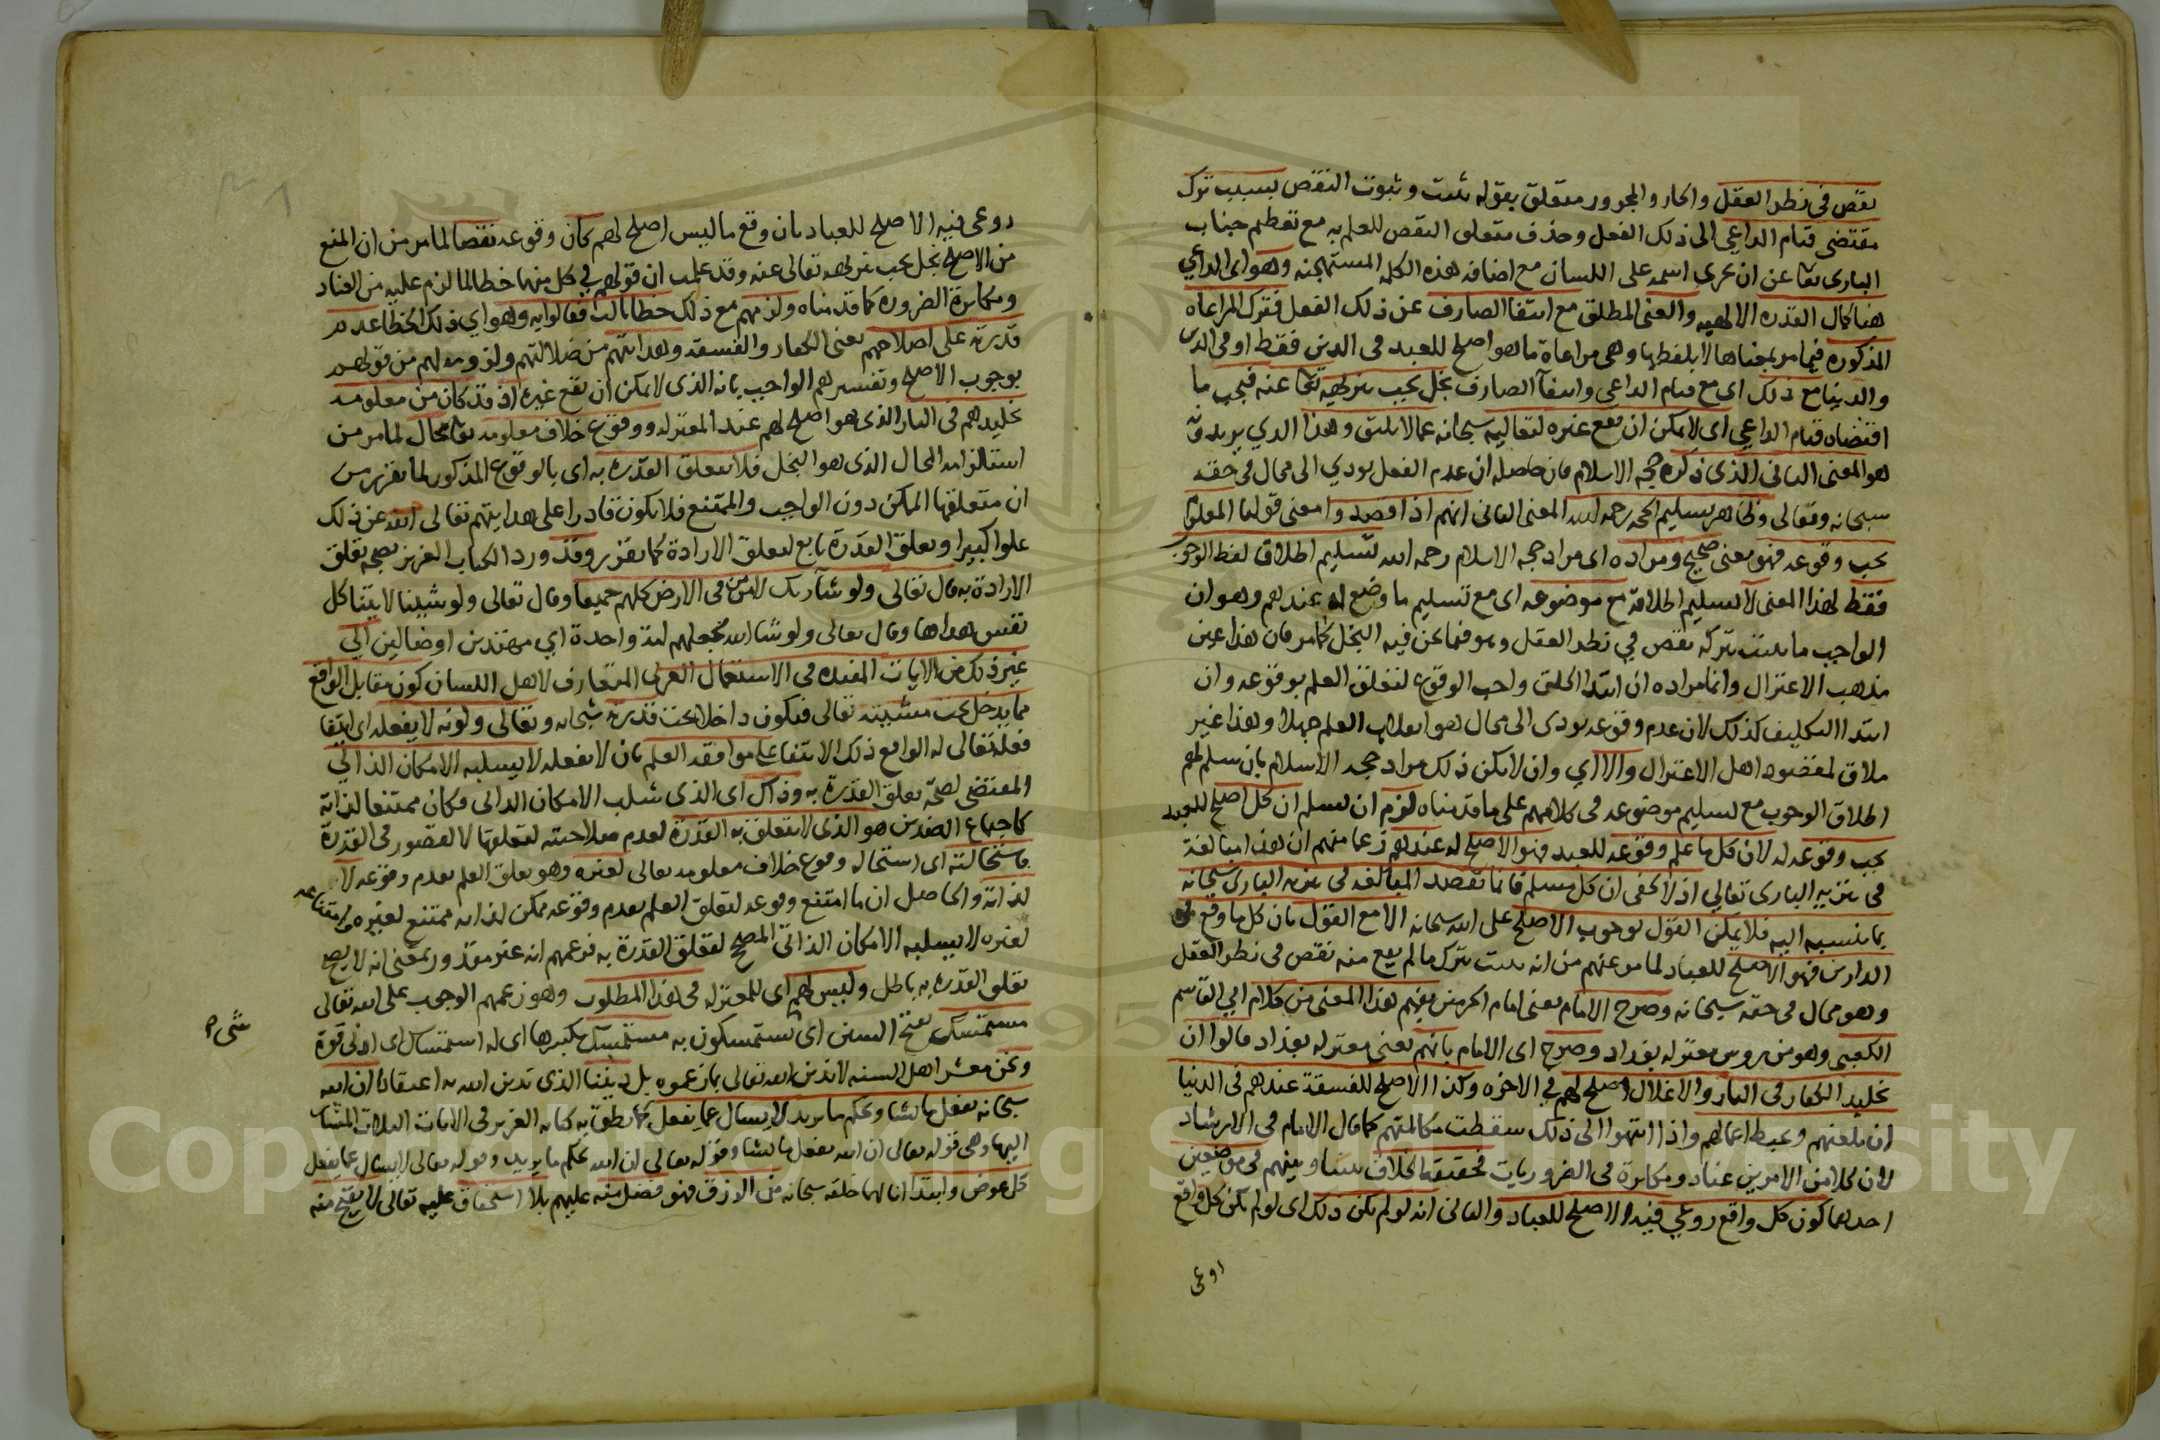 نقص في نظر العقل والجار والمجرور متعلق بقوله يثبت وثبوت النقص بسبب ترك
مقتضى قيام الداعي الى ذلك الفعل وحذف متعلق النقص للعلم به مع تعظيم جناب
الباري تعا عن ان يجري اسمه على اللسان مع اضافه هذه الكلمه المستهجنه وهو اى الداعي
هنا كمال القدره الالهيه والغنى المطلق مع انتفا الصارف عن ذلك الفعل فترك المراعاه
المذكوره فيما مر بمعناها لا بلفظها وهي مراعاة ما هو اصلح للعبد في الدين فقط او في الدين
والدنيا مع ذلك اى مع قيام الداعي وانتفآ الصارف بخل يجب تنزيهه تعا عنه فيجب ما
اقتضاه قيام الداعي اى لا يمكن ان يقع غيره لتعاليه سبحانه عما لا يليق وهذا الذي يريدونه
هو المعنى الثاني الذى ذكره حجه الاسلام فان حاصله ان عدم الفعل يودي الى محال في حقه
سبحانه وتعالى وظاهر تسليم الحجه رحمه الله المعنى الثاني انهم اذا قصدوا معنى قولنا المعلوم
يجب وقوعه فهو معنى صحيح ومراده اى مراد حجه الاسلام رحمه الله تسليم اطلاق لفظ الوجوب
فقط لهذا المعنى لا تسليم اطلاقه مع موضوعه اى مع تسليم ما وضع له عندهم وهو ان
الواجب ما يثبت بتركه نقص في نظر العقل وهو فيما نحن فيه البخل كما مر فان هذا عين
مذهب الاعتزال وانما مراده ان ابتدا الخلق واجب الوقوع لتعلق العلم بوقوعه وان
ابتدا التكليف كذلك لان عدم وقوعه يودى الى محال هو انقلاب العلم جهلا وهذا غير
ملاق لمقصود اهل الاعتزال والا اي وان لا يكن ذلك مراد حجه الاسلام بان سلم لهم
اطلاق الوجوب مع تسليم موضوعه في كلامهم على ما قدمناه لزم ان يسلم ان كل اصلح للعبد
يجب وقوعه له لان كل ما علم وقوعه للعبد فهو الاصلح له عندهم زعما منهم ان هذا مبالغة
في تنزيه الباري تعالى اذ لا يخفى ان كل مسلم فانما يقصد المبالغه في تنزيه الباري سبحانه
بما ينسبه اليه فلا يمكن القول بوجوب الاصلح على الله سبحانه الا مع القول بان كل ما وقع في
الدارين فهو الاصلح للعباد لما مر عنهم من انه يثبت بترك ما لم يقع منه نقص في نظر العقل
وهو محال في حقه سبحانه وصرح الامام يعنى امام الحرمين بفهم هذا المعنى من كلام ابي القاسم
الكعبي وهو من روس معتزله بغداد وصرح اى الامام بانهم يعنى معتزله بغداد قالوا ان
تخليد الكفار في النار والاغلال اصلح لهم في الاخره وكذا الاصلح للفسقة عندهم في الدنيا
ان يلعنهم ويحبط اعمالهم واذا انتهوا الى ذلك سقطت مكالمتهم كما قال الامام في الارشاد
لان كلا من الامرين عناد ومكابرة في الضروريات فحقيقة الخلاف بيننا وبينهم في موضعين
احدهما كون كل واقع روعي فيه الاصلح للعباد والثاني انه لو لم يكن ذلك اى لو لم يكن كل واقع
روعى
روعى فيه الاصلح للعباد بان وقع ما ليس اصلح لهم كان وقوعه نقصا لما مر من ان المنع
من الاصلح بخل يجب تنزيهه تعالى عنه وقد علمت ان قولهم في كل منها خطا لما لزم عليه من العناد
ومكابرة الضروره كما قدمناه ولزمهم مع ذلك خطا ثالث فقالوا به وهو اي ذلك الخطا عدم
قدرته على اصلاحهم يعنى الكفار والفسقه وهدايتهم من ضلالتهم ولزومه لهم من قولهم
بوجوب الاصلح وتفسيرهم الواجب بانه الذى لا يمكن ان يقع غيره اذ قد كان من معلومه
تخليدهم في النار الذى هو اصلح لهم عند المعتزله ووقوع خلاف معلومه تعا محال لما مر من
استلزامه المحال الذى هو البخل فلا تتعلق القدره به اى بالوقوع المذكور لما تقرر من
ان متعلقها الممكن دون الواجب والممتنع فلا يكون قادرا على هدايتهم تعالى الله عن ذلك
علوا كبيرا وتعلق القدرة تابع لتعلق الارادة كما تقرر وقد ورد الكتاب العزيز بصحه تعلق
الارادة به قال تعالى ولو شآ ربك لامن من في الارض كلهم جميعا وقال تعالى ولو شيئنا لاتينا كل
نفس هداها وقال تعالى ولو شا الله لجعلهم امة واحدة اي مهتدين او ضالين الى
غير ذلك من الايات المفيده في الاستعمال العربي المتعارف لاهل اللسان كون مقابل الواقع
مما يدخل تحت مشيئته تعالى فيكون داخلا تحت قدرته سبحانه وتعالى وكونه لا يفعله اى انتفا
فعله تعالى له الواقع ذلك الانتفا على موافقه العلم بان لا يفعله لا يسلبه الامكان الذاتي
المقتضى لصحة تعلق القدرة به وذاك اى الذى سلب الامكان الذاتي وكان ممتنعا لذاته
كاجتماع الضدين هو الذى لا تتعلق به القدرة لعدم صلاحيته لتعلقها لا لقصور في القدرة
فاستحالته اى استحاله وقوع خلاف معلومه تعالى لغيره وهو تعلق العلم بعدم وقوعه لا
لذاته والحاصل ان ما امتنع وقوعه لتعلق العلم بعدم وقوعه ممكن لذاته ممتنع لغيره وامتناعه
لغيره لا يسلبه الامكان الذاتي المصحح لتعلق القدرة به فزعمهم انه غير مقدور بمعنى انه لا يصح
تعلق القدره به باطل وليس لهم اى للمعتزله في هذا المطلوب وهو زعمهم الوجوب على الله تعالى
مستمسك بفتح السين اى شى يستمسكون به مستمسك بكسرها اى له استمساك اى ادنى قوة
شى ٢
ونحن معشر اهل السنه لا ندين الله تعالى بما زعموه بل ديننا الذى ندين الله به اعتقادنا ان الله
سبحانه يفعل ما يشا ويحكم ما يريد لا يسال عما يفعل كما نطق به كتابه العزيز في الايات الثلاث المشار
اليها وهي قوله تعالى ان الله يفعل ما يشا وقوله تعالى ان الله يحكم ما يريد وقوله تعالى لا يسال عما يفعل
كل عوض وابتدا انالها خلقه سبحانه من الرزق فهو فضل منه عليهم بلا استحقاق عليه تعالى لا يقبح منه